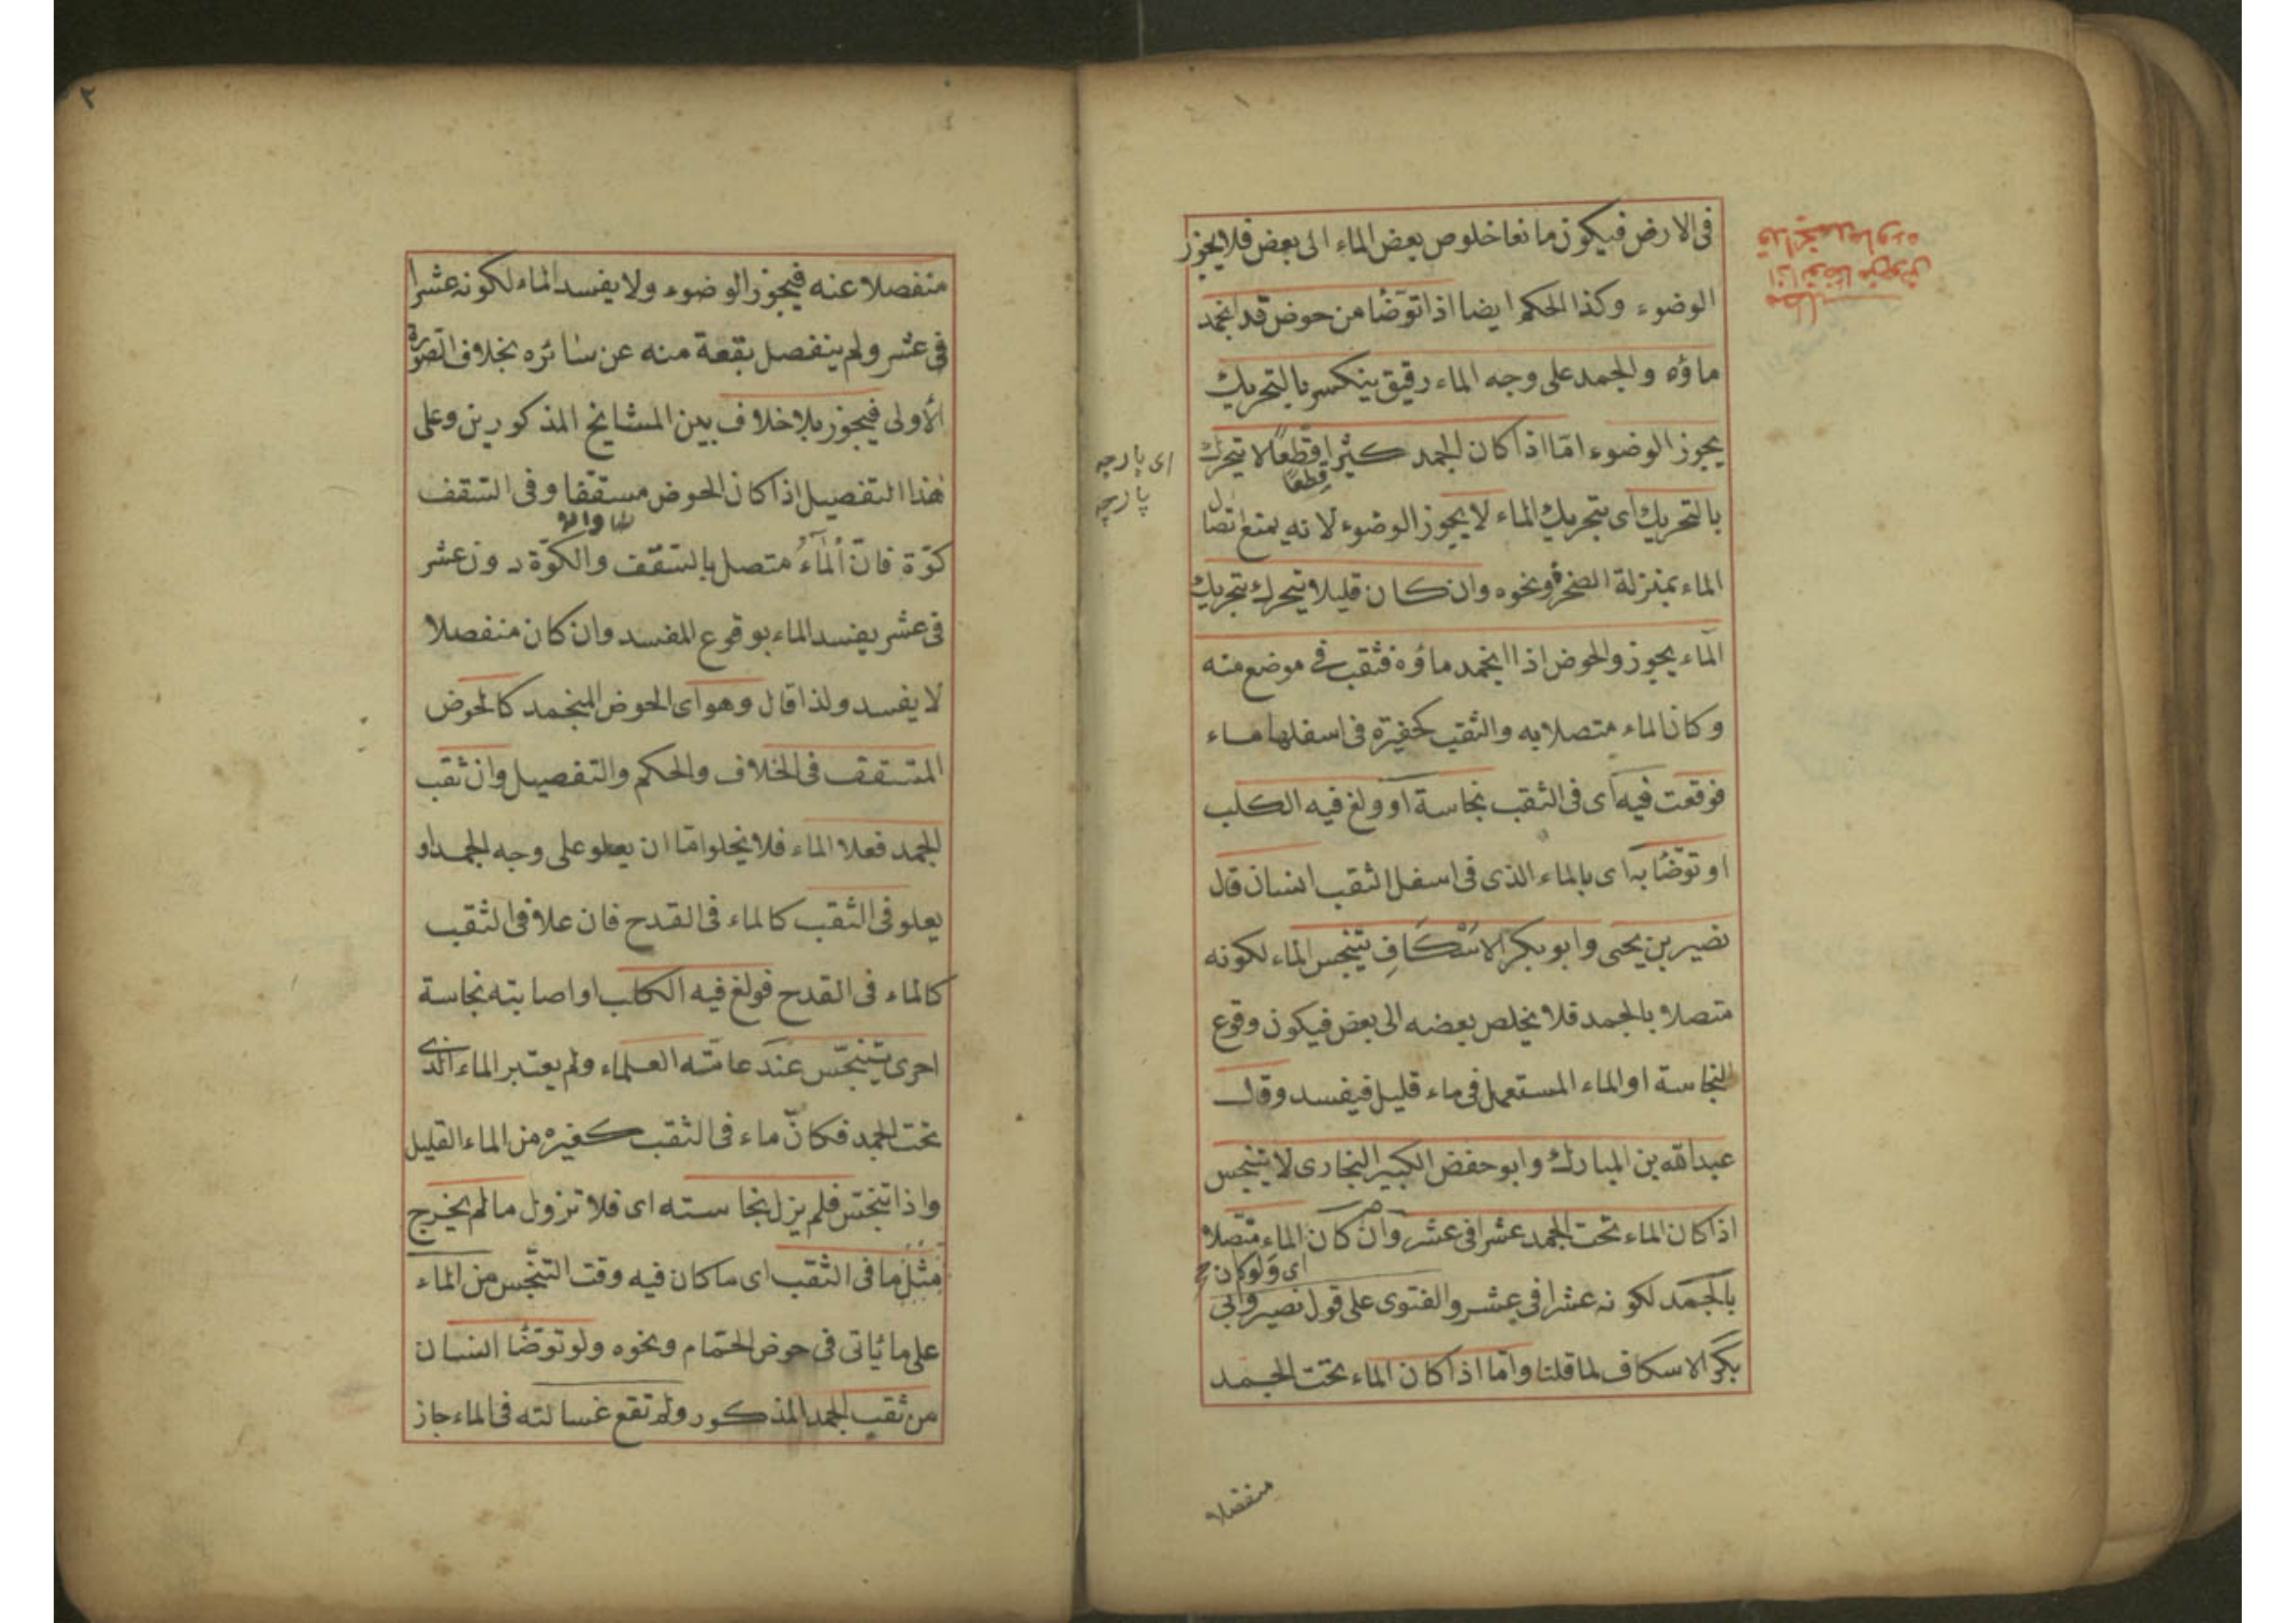 فى الارض فيكون مانعا خلوص بعض الماء الى بعض فلا يجوز
الوضوء وكذا الحكم ايضا اذا توضأ من حوض قد انجمد
ماؤه والجمد على وجه الماء رقيق ينكسر بالتحريك
يجوز الوضوء امّا اذا كان الجمد كثيرا قطعًا لا يتحرك
قطعًا
اى پارچه
پارچه
بالتحريك اى بتحريك الماء لا يجوز الوضوء لانه يمنع اتصال
الماء بمنزلة الصخرة ونحوه وان كان قليلا يتحرك بتحريك
الماء يجوز والحوض اذا انجمد ماؤه فثقب فى موضع منه
وكان الماء متصلا به والثقب كحفيرة فى اسفلها ماء
فوقعت فيه اى فى الثقب نجاسة او ولغ فيه الكلب
او توضّأ به اى بالماء الذى فى اسفل الثقب انسان قال
نصير بن يحيى وابو بكر الاسْكَافِ يتنجس الماء لكونه
متصلا بالجمد فلا يخلص بعضه الى بعض فيكون وقوع
النجاسة او الماء المستعمل فى ماء قليل فيفسد وقال
عبدالله بن المبارك وابو حفض الكبير البخارى لا يتنجس
اذا كان الماء تحت الجمد عشرا فى عشر وان كان الماء متّصلا
اى ولو كان
بالجمد لكونه عشرا فى عشر والفتوى على قول نصير وابى
بكر الاسكاف لما قلنا وامّا اذا كان الماء تحت الجمد
منفصلا
٢
منفصلا عنه فيجوز الوضوء ولا يفسد الماء لكونه عشرا
فى عشر ولم ينفصل بقعة منه عن سائره بخلاف الصورة
الأولى فيجوز بلا خلاف بين المشايخ المذكورين وعلى
هٰذا التفصيل اذا كان الحوض مسقفا وفى السّقف
كوّة فانّ الْمَآءُ متصل بالسّقف والكوّة دون عشر
فى عشر يفسد الماء بوقوع المفسد وان كان منفصلا
لا يفسد ولذا قال وهو اى الحوض المنجمد كالحوض
المسّقف فى الخلاف والحكم والتفصيل وان ثقب
الجمد فعلا الماء فلا يخلوا امّا ان يعلو على وجه الجمد او
يعلو فى الثقب كالماء فى القدح فان علا فى الثقب
كالماء فى القدح فولغ فيه الكلب او اصابته نجاسة
اخرى يتنجّس عند عامّة العلماء ولم يعتبر الماء الذى
تحت الجمد فكانّ ماء فى الثقب كغيره من الماء القليل
واذا تنجّس فلم يزل نجاسته اى فلا تزول ما لم يخرج
مثل ما فى الثقب اى ما كان فيه وقت التنجّس من الماء
على ما يأتى فى حوض الحمّام ونحوه ولو توضّأ انسان
من ثقب الجمد المذكور ولم تقع غسالته فى الماء جاز